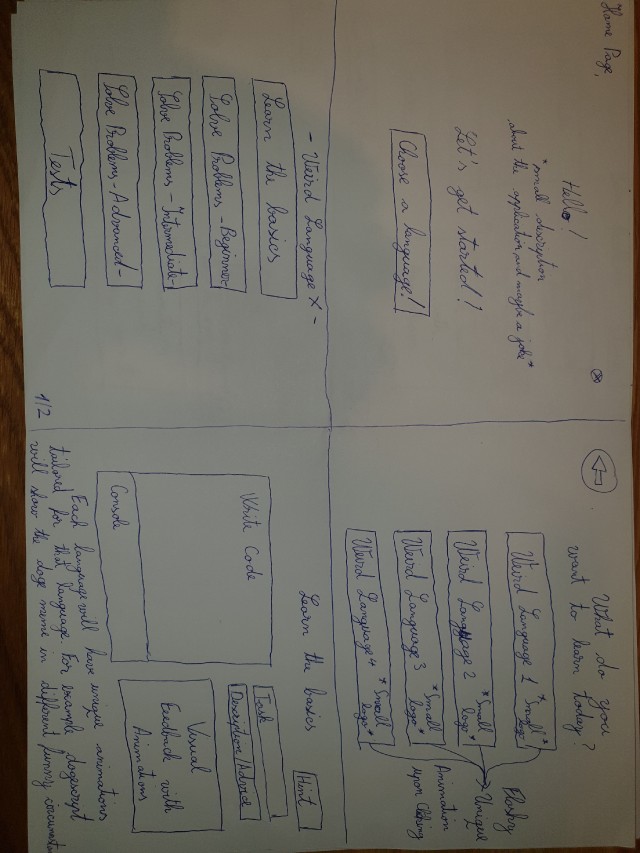 Home Page,
Hello!
*small description
about the application, and maybe a joke*
Let's get started!
Choose a language!
What do you
want to learn today?
Weird Language 1 *Small logo*
Weird Language 2 *Small logo*
Weird Language 3 *Small logo*
Weird Language 4 *Small logo*
Flashy
Unique
Animation
upon Clicking
- Weird Language X -
Learn the basics
Solve Problems -Beginner-
Solve Problems -Intermediate-
Solve Problems -Advanced-
Tests
1/2
Learn the basics
Hint
Write Code
Console
Task
Description/Advice
Visual
Feedback with
Animations
Each language will have unique animations
tailored for that language. For example dogescript
will show the doge meme in different funny